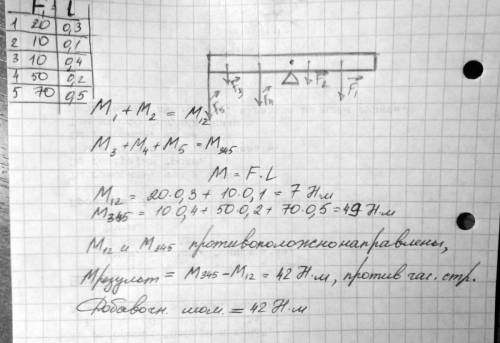 F₁ L
1 20 0,3
2 10 0,1
3 10 0,4
4 50 0,2
5 70 0,5
F₅ F₃ F₄ F₂ F₁
M₁ + M₂ = M₁₂
M₃ + M₄ + M₅ = M₃₄₅
M = F · L
M₁₂ = 20·0,3 + 10·0,1 = 7 Н·м
M₃₄₅ = 10·0,4 + 50·0,2 + 70·0,5 = 49 Н·м
M₁₂ и M₃₄₅ противоположнонаправлены,
Mрезульт = M₃₄₅ - M₁₂ = 42 Н·м, против час. стр.
Добавочн. мом. = 42 Н·м